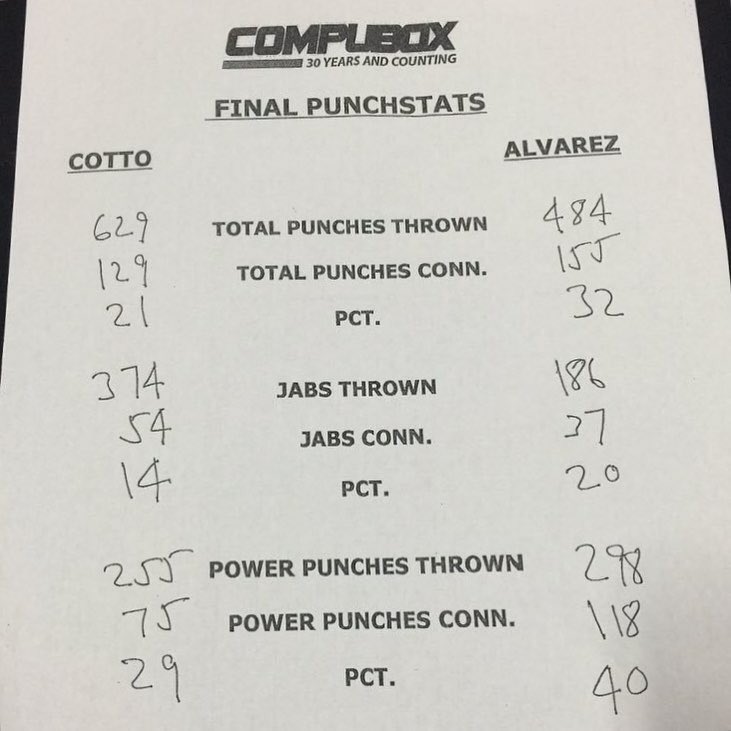 COMPUBOX
30 YEARS AND COUNTING
FINAL PUNCHSTATS
COTTO ALVAREZ
629 TOTAL PUNCHES THROWN 484
129 TOTAL PUNCHES CONN. 155
21 PCT. 32
374 JABS THROWN 186
54 JABS CONN. 37
14 PCT. 20
255 POWER PUNCHES THROWN 298
75 POWER PUNCHES CONN. 118
29 PCT. 40